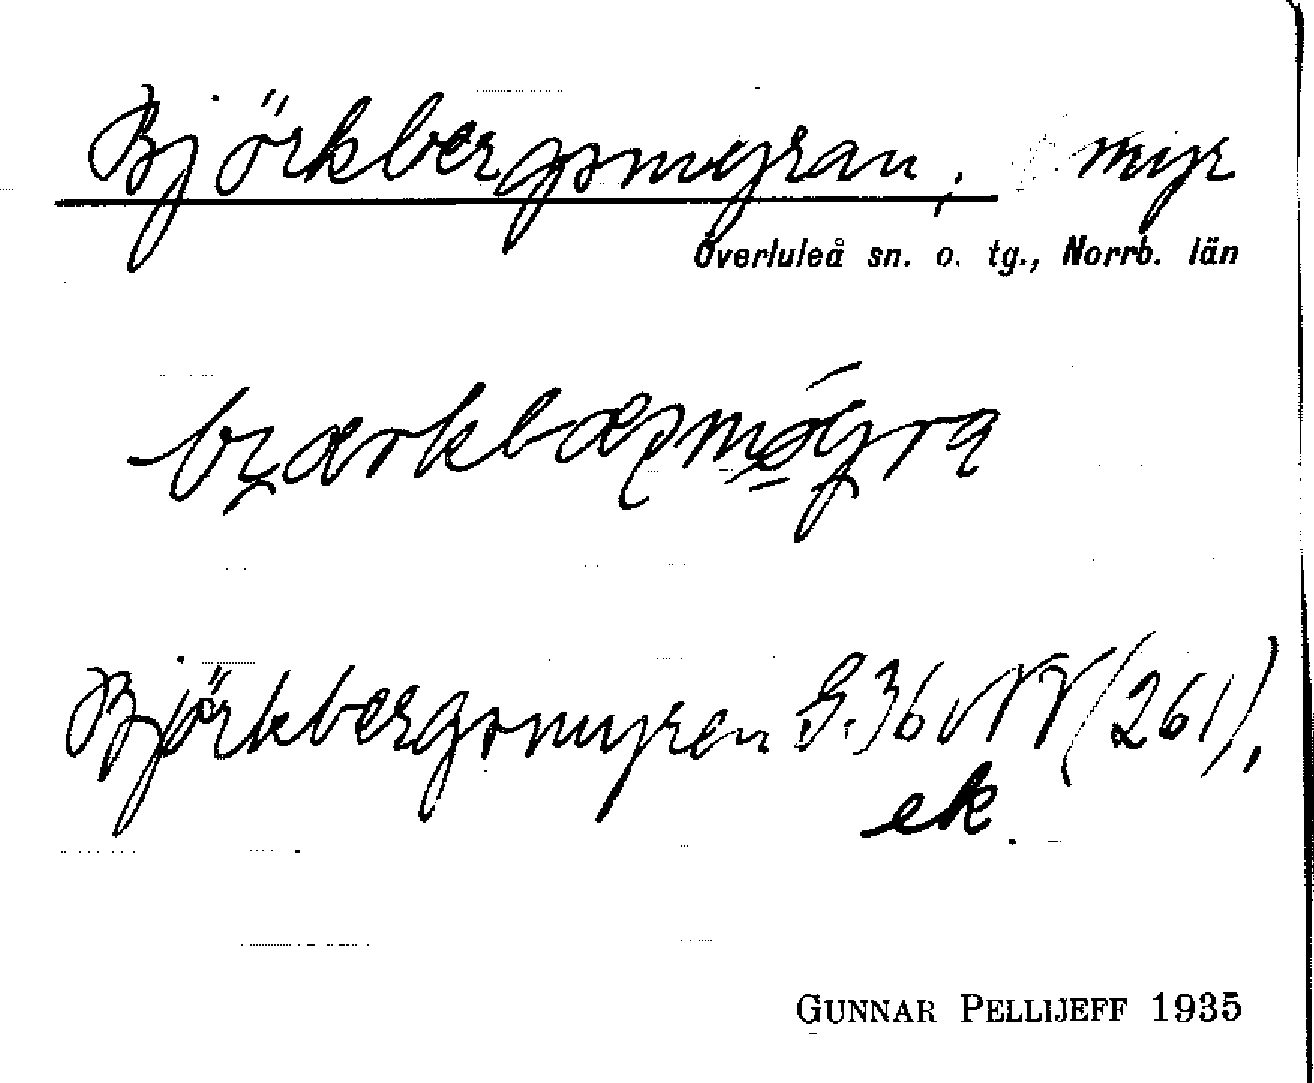 Björkbergsmyran, myr
Överluleå sn. o. tg., Norrb. län
Björkbergsmyren G. 36 NV (261),
ek.
GUNNAR PELLIJEFF 1935